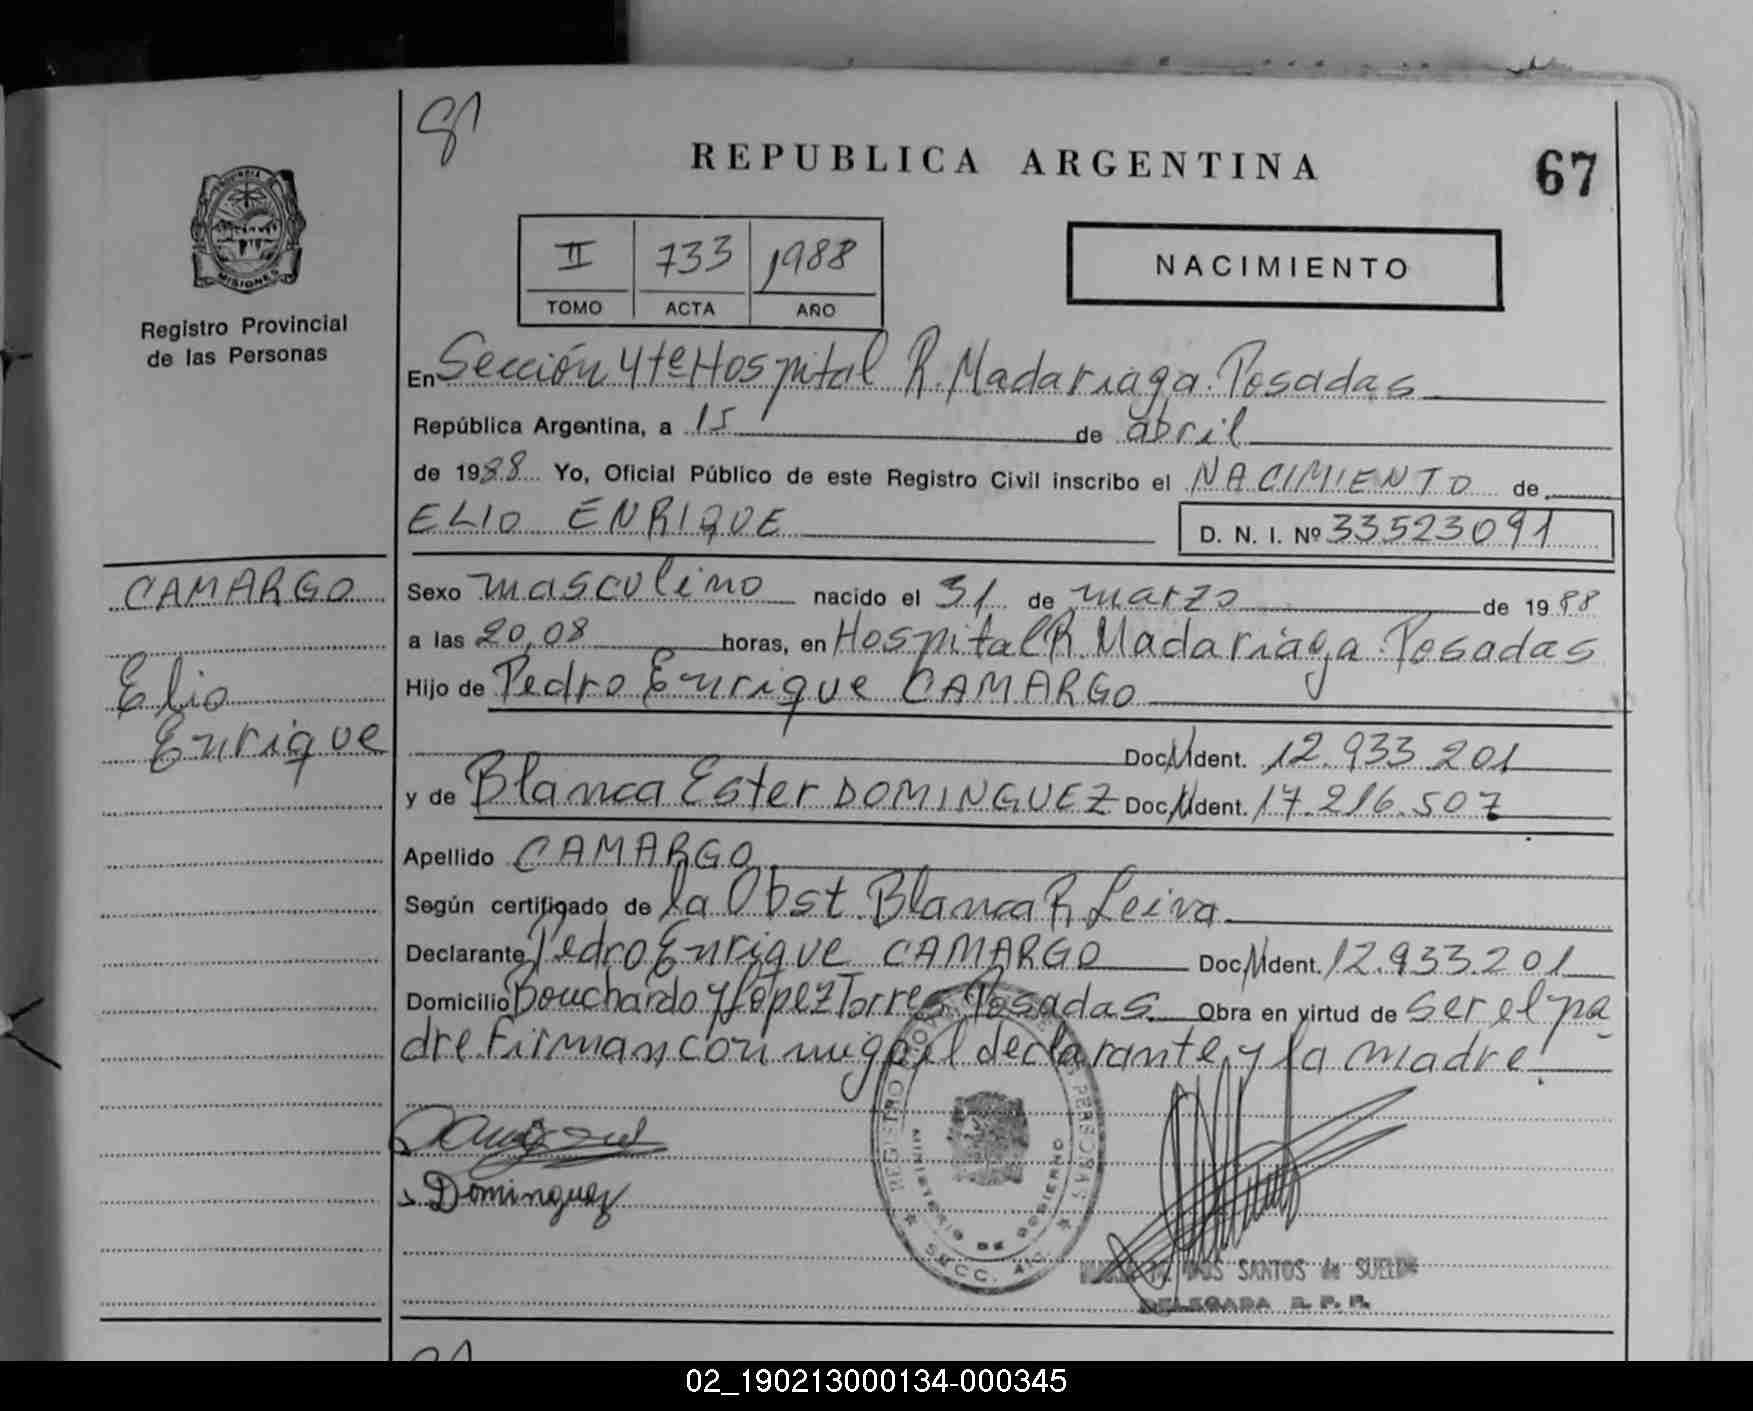 81
REPUBLICA ARGENTINA
67
PROVINCIA DE
MISIONES
Registro Provincial
de las Personas
II 733 1988
TOMO ACTA AÑO
NACIMIENTO
En Sección 4te Hospital R. Madariaga. Posadas
República Argentina, a 15 de abril
de 1988 Yo, Oficial Público de este Registro Civil inscribo el NACIMIENTO de
ELIO ENRIQUE
D. N. I. Nº 33523091
CAMARGO
Elio
Enrique
Sexo masculino nacido el 31 de marzo de 1988
a las 20,08 horas, en Hospital R. Madariaga. Posadas
Hijo de Pedro Enrique CAMARGO
Doc. Ident. 12.933.201
y de Blanca Ester DOMINGUEZ Doc. Ident. 17.216.507
Apellido CAMARGO
Según certificado de la Obst. Blanca R Leiva
Declarante Pedro Enrique CAMARGO Doc. Ident. 12.933.201
Domicilio Bouchardo y López Torres Posadas. Obra en virtud de ser el pa-
dre. Firman conmigo el declarante y la madre!
Dominguez
REGISTRO PERSONAS
MINISTERIO DE GOBIERNO
SECC.
DOS SANTOS de
DELEGADA R. P. P.
02_190213000134-000345